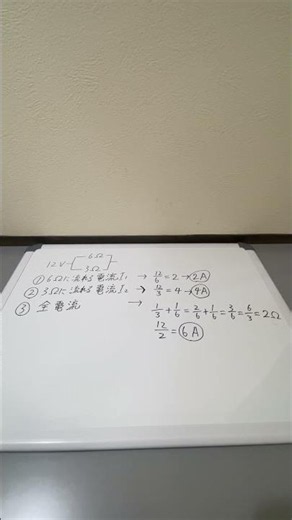 6Ω
12V
3Ω
①6Ωに流れる電流I₁ → 12/6=2→2A
②3Ωに流れる電流I₂ → 12/3=4→4A
③全電流 → 1/3+1/6=2/6+1/6=3/6=6/3=2Ω
12/2=6A